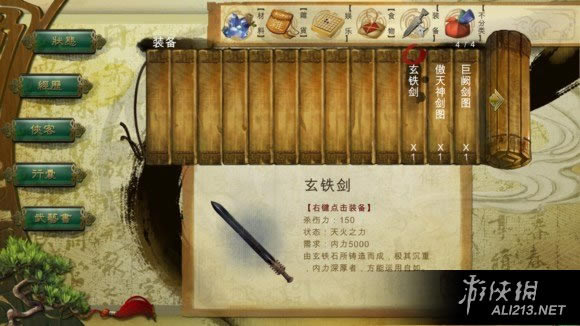 材料
雜貨
娱乐
食物
装备
不分类
4 / 4
装备
狀態
經歷
俠客
行囊
武藝書
巨阙剑图
X
1
傲天神剑图
X
1
玄铁剑
X
1
玄铁剑
【右键点击装备】
杀伤力:150
状态:天火之力
需求:内力5000
由玄铁石所铸造而成,极其沉重
,内力深厚者,方能运用自如。
游侠网
ALI213.NET